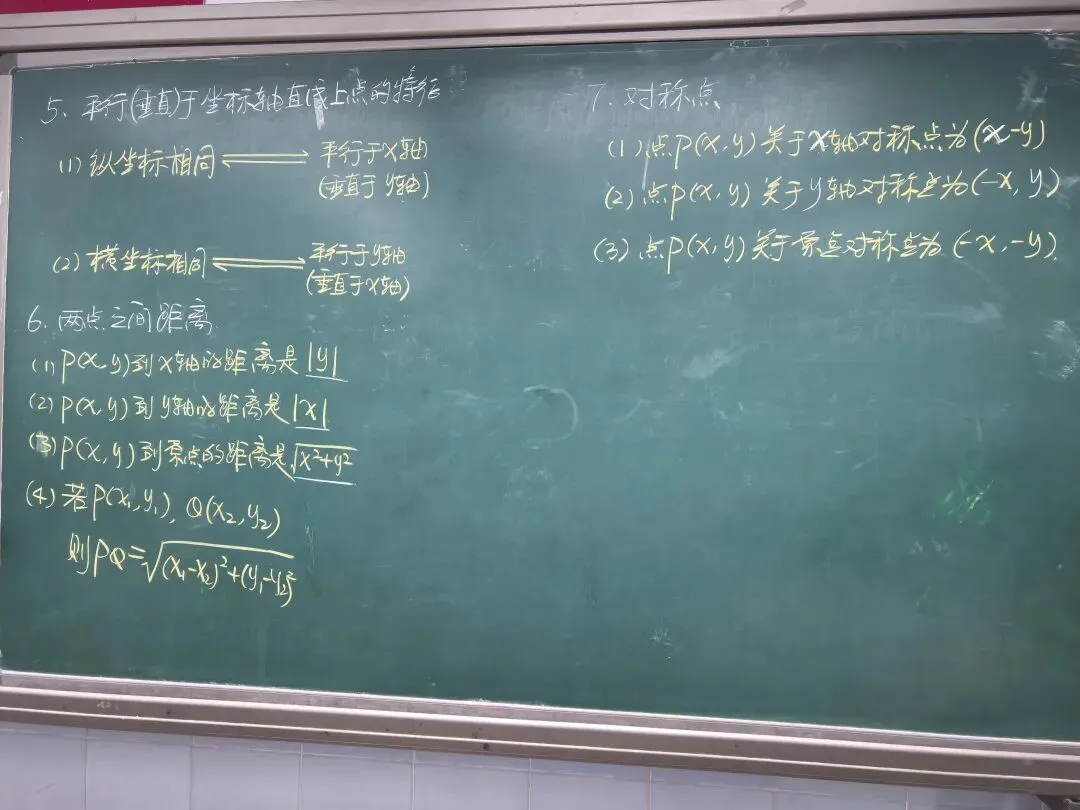 5、平行(垂直)于坐标轴直线上点的特征
(1) 纵坐标相同 ⇌ 平行于x轴
(垂直于y轴)
(2) 横坐标相同 ⇌ 平行于y轴
(垂直于x轴)
6、两点之间距离
(1) P(x,y)到x轴的距离是|y|
(2) P(x,y)到y轴的距离是|x|
(3) P(x,y)到原点的距离是√(x²+y²)
(4) 若P(x₁,y₁), Q(x₂,y₂)
则PQ=√((x₁-x₂)²+(y₁-y₂)²)
7、对称点
(1) 点P(x,y)关于x轴对称点为(x -y)
(2) 点P(x,y)关于y轴对称点为(-x,y)
(3) 点P(x,y)关于原点对称点为(-x,-y)